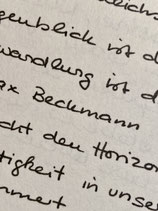 genblick ist d
wandlung ist d
ax Beckmann
cht den Horizo
tigkeit in unser
mmert